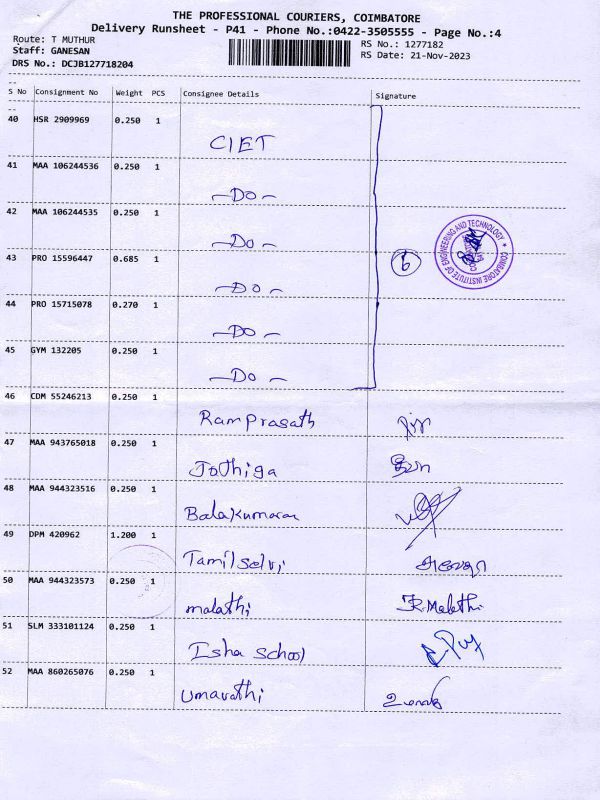 THE PROFESSIONAL COURIERS, COIMBATORE
Delivery Runsheet - P41 - Phone No.:0422-3505555 - Page No.:4
Route: T MUTHUR
Staff: GANESAN
DRS No.: DCJB127718204
RS No.: 1277182
RS Date: 21-Nov-2023
S No Consignment No Weight PCS Consignee Details Signature
40 HSR 2909969 0.250 1
CIET
41 MAA 106244536 0.250 1
-DO-
42 MAA 106244535 0.250 1
-DO-
43 PRO 15596447 0.685 1
-DO-
6
COIMBATORE INSTITUTE OF ENGINEERING AND TECHNOLOGY
44 PRO 15715078 0.270 1
-DO-
45 GYM 132205 0.250 1
-DO-
46 CDM 55246213 0.250 1
Ramprasath
47 MAA 943765018 0.250 1
Jothiga
48 MAA 944323516 0.250 1
Balakumaran
49 DPM 420962 1.200 1
Tamilselvi
50 MAA 944323573 0.250 1
malathi R.Malathi
51 SLM 333101124 0.250 1
Isha School
52 MAA 860265076 0.250 1
Umavathi